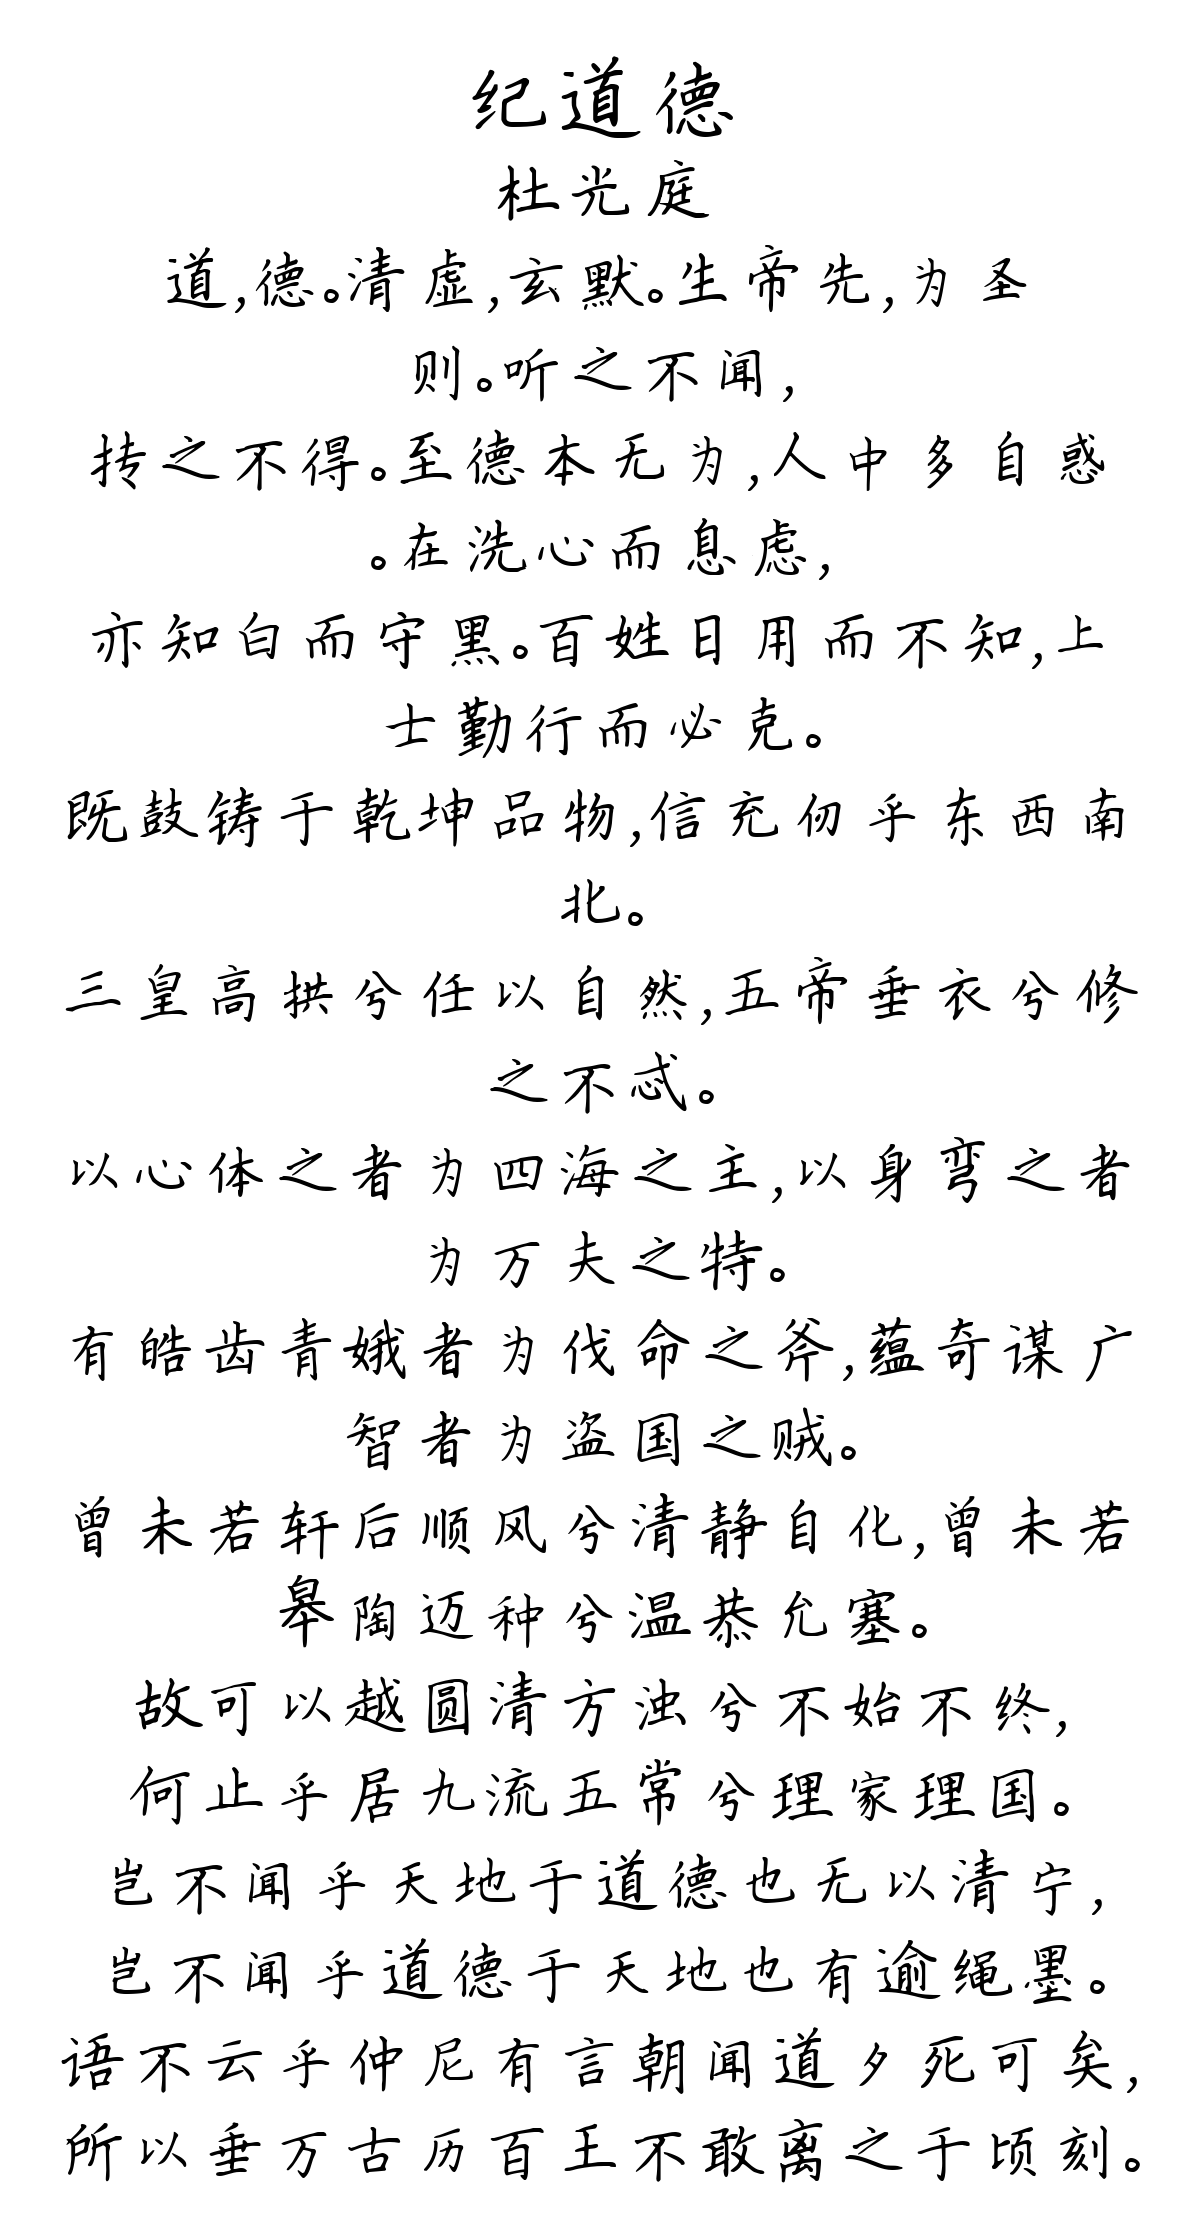 纪道德
杜光庭
道,德。清虚,玄默。生帝先,为圣
则。听之不闻,
抟之不得。至德本无为,人中多自惑
。在洗心而息虑,
亦知白而守黑。百姓日用而不知,上
士勤行而必克。
既鼓铸于乾坤品物,信充仞乎东西南
北。
三皇高拱兮任以自然,五帝垂衣兮修
之不忒。
以心体之者为四海之主,以身弯之者
为万夫之特。
有皓齿青娥者为伐命之斧,蕴奇谋广
智者为盗国之贼。
曾未若轩后顺风兮清静自化,曾未若
皋陶迈种兮温恭允塞。
故可以越圆清方浊兮不始不终,
何止乎居九流五常兮理家理国。
岂不闻乎天地于道德也无以清宁,
岂不闻乎道德于天地也有逾绳墨。
语不云乎仲尼有言朝闻道夕死可矣,
所以垂万古历百王不敢离之于顷刻。